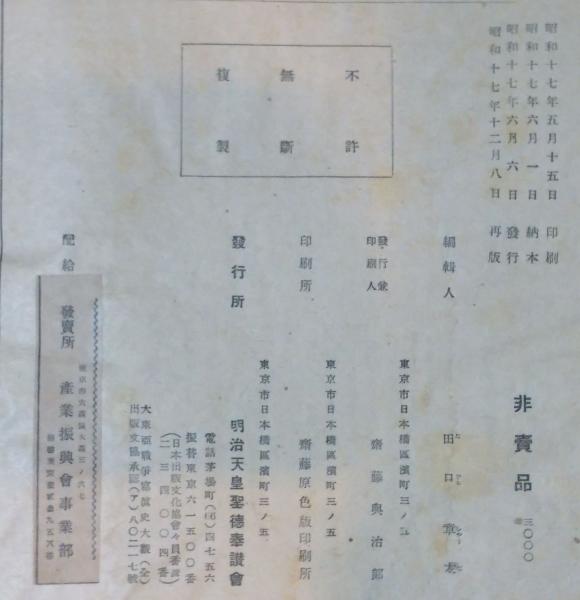 昭和十七年五月十五日 印刷
昭和十七年六月一日 納本
昭和十七年六月六日 發行
昭和十七年十二月八日 再版
非賣品
三〇〇〇
編輯人
田口章
發行兼
印刷人
東京市日本橋區濱町三ノ五
齋藤與治郎
印刷所
東京市日本橋區濱町三ノ五
齋藤原色版印刷所
發行所
東京市日本橋區濱町三ノ五
明治天皇聖德奉讃會
電話茅場町(66)四七五六
振替東京六一五〇〇番
(日本出版文化協會々員番號)
(二三四〇〇四番)
大東亞戰爭寫眞史大觀(全)
出版文協承認(ア)八〇二一七號
不許
無斷
複製
配給
發賣所 產業振興會事業部